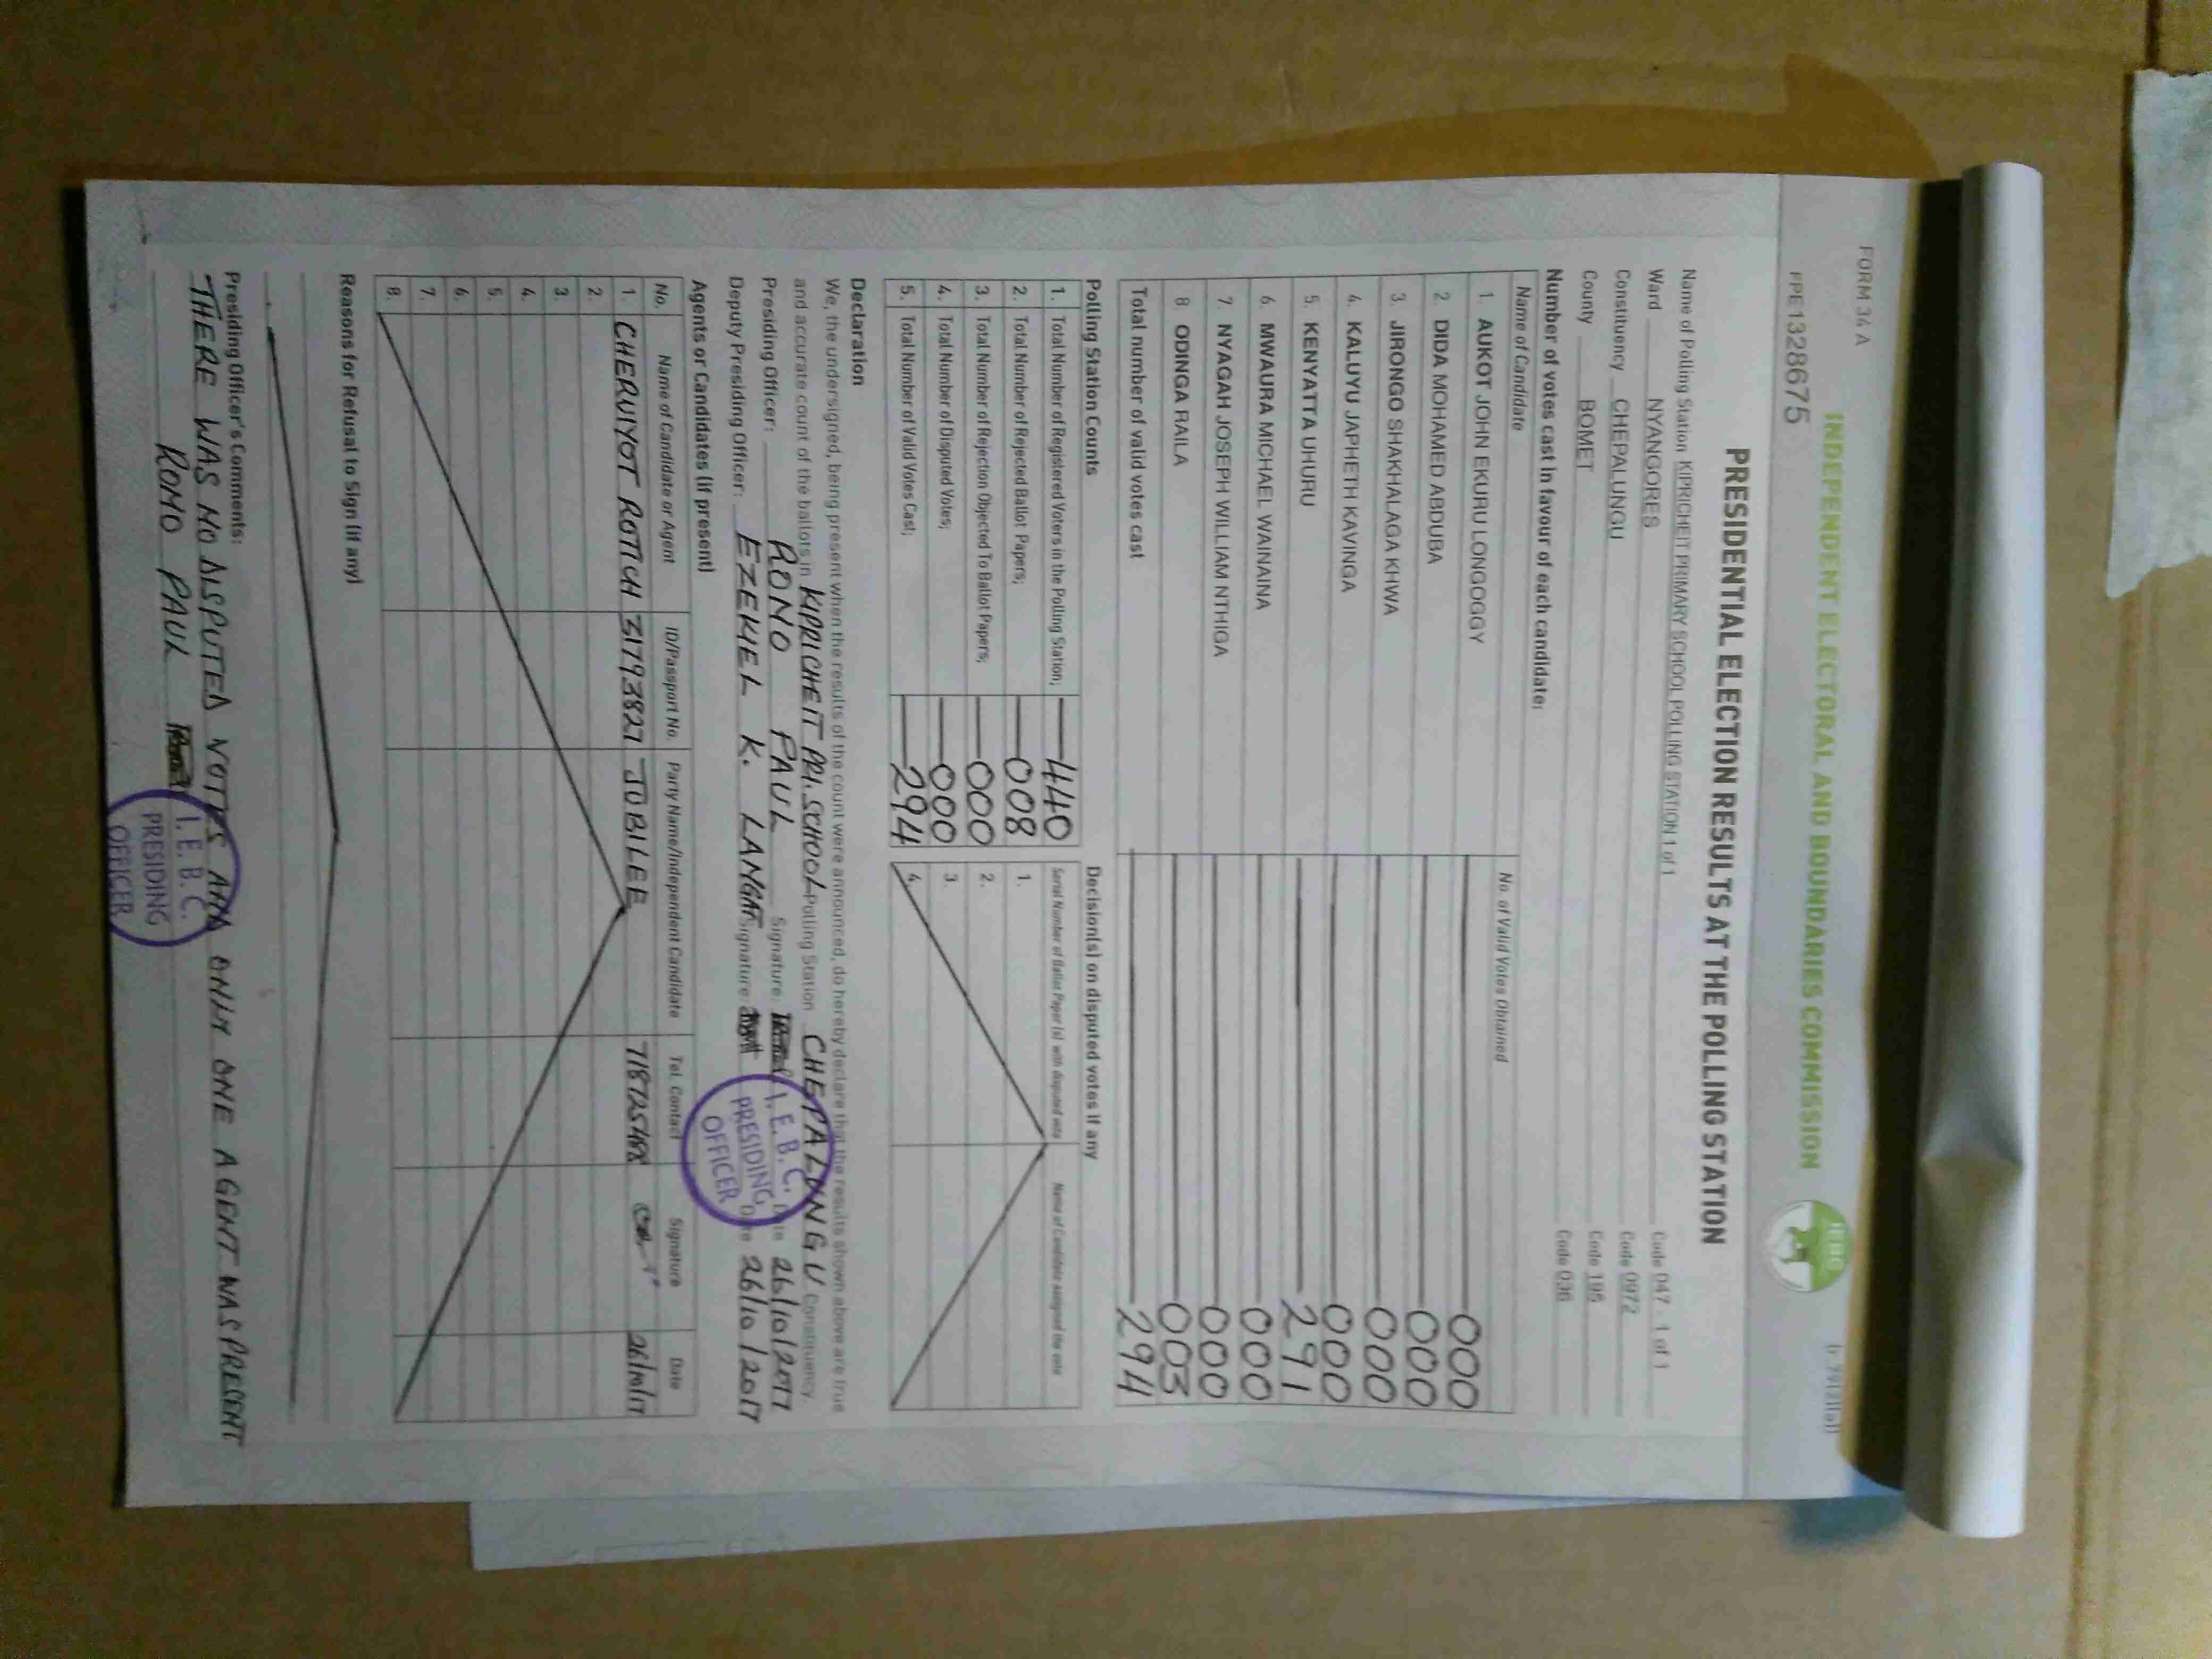 FORM 34 A
INDEPENDENT ELECTORAL AND BOUNDARIES COMMISSION
IEBC
FPE1328675
PRESIDENTIAL ELECTION RESULTS AT THE POLLING STATION
Name of Polling Station KIPRICHEIT PRIMARY SCHOOL POLLING STATION 1 of 1 Code 047 - 1 of 1
Ward NYANGORES Code 0972
Constituency CHEPALUNGU Code 195
County BOMET Code 036
Number of votes cast in favour of each candidate:
Name of Candidate No. of Valid Votes Obtained
1. AUKOT JOHN EKURU LONGOGGY 000
2. DIDA MOHAMED ABDUBA 000
3. JIRONGO SHAKHALAGA KHWA 000
4. KALUYU JAPHETH KAVINGA 000
5. KENYATTA UHURU 291
6. MWAURA MICHAEL WAINAINA 000
7. NYAGAH JOSEPH WILLIAM NTHIGA 000
8. ODINGA RAILA 003
Total number of valid votes cast 294
Polling Station Counts
1. Total Number of Registered Voters in the Polling Station; 440
2. Total Number of Rejected Ballot Papers; 008
3. Total Number of Rejection Objected To Ballot Papers; 000
4. Total Number of Disputed Votes; 000
5. Total Number of Valid Votes Cast; 294
Decision(s) on disputed votes if any
Serial Number of Ballot Paper (s) with disputed vote Name of Candidate assigned the vote
1.
2.
3.
4.
Declaration
We, the undersigned, being present when the results of the count were announced, do hereby declare that the results shown above are true
and accurate count of the ballots in KIPRICHEIT PRI. SCHOOL Polling Station CHEPALUNGU Constituency.
Presiding Officer: RONO PAUL Signature: Date 26/10/2017
Deputy Presiding Officer: EZEKIEL K. LANGAT Signature Date 26/10/2017
I. E. B. C.
PRESIDING
OFFICER
Agents or Candidates (if present)
No. Name of Candidate or Agent ID/Passport No. Party Name/Independent Candidate Tel. Contact Signature Date
1. CHERUIYOT ROTICH 31793827 JUBILEE 26/10/17
2.
3.
4.
5.
6.
7.
8.
Reasons for Refusal to Sign (if any)
Presiding Officer's Comments:
THERE WAS NO DISPUTED VOTES AND ONLY ONE AGENT WAS PRESENT
RONO PAUL
I. E. B. C.
PRESIDING
OFFICER